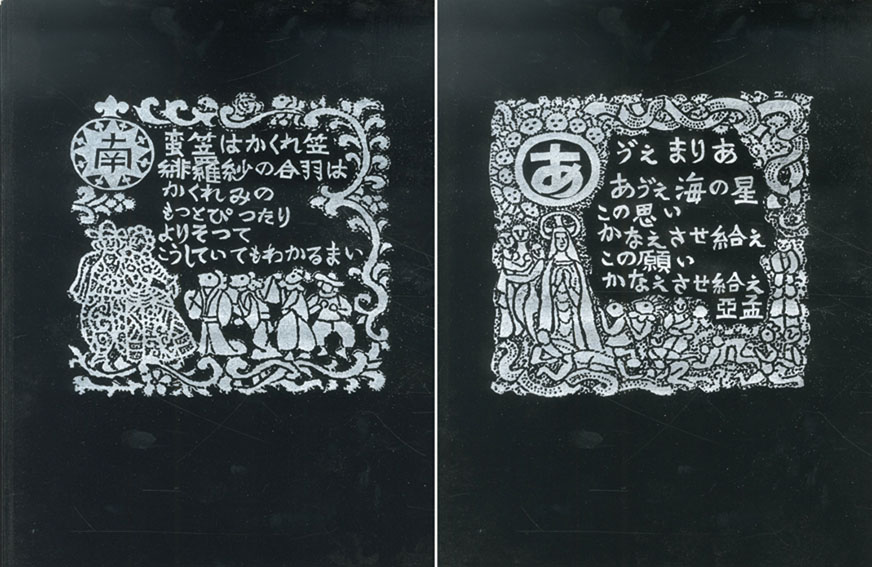 南蛮笠はかくれ笠
緋羅紗の合羽は
かくれみの
もつとぴつたり
よりそつて
こうしていてもわかるまい
あゔぇ まりあ
あゔぇ海の星
この思い
かなえさせ給え
この願い
かなえさせ給え
亞孟